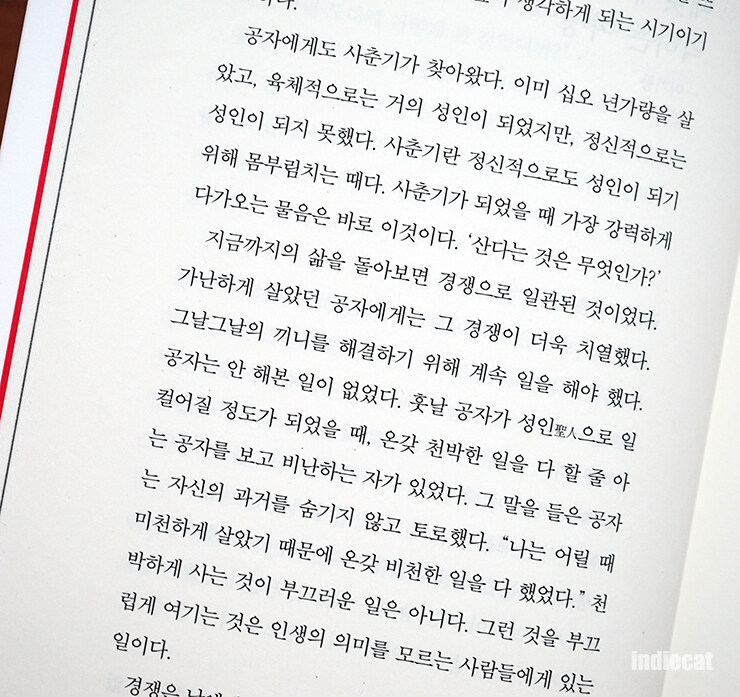 생각하게 되는 시기이기
다.
공자에게도 사춘기가 찾아왔다. 이미 십오 년가량을 살
았고, 육체적으로는 거의 성인이 되었지만, 정신적으로는
성인이 되지 못했다. 사춘기란 정신적으로도 성인이 되기
위해 몸부림치는 때다. 사춘기가 되었을 때 가장 강력하게
다가오는 물음은 바로 이것이다. ‘산다는 것은 무엇인가?’
지금까지의 삶을 돌아보면 경쟁으로 일관된 것이었다.
가난하게 살았던 공자에게는 그 경쟁이 더욱 치열했다.
그날그날의 끼니를 해결하기 위해 계속 일을 해야 했다.
공자는 안 해본 일이 없었다. 훗날 공자가 성인聖人으로 일
컬어질 정도가 되었을 때, 온갖 천박한 일을 다 할 줄 아
는 공자를 보고 비난하는 자가 있었다. 그 말을 들은 공자
는 자신의 과거를 숨기지 않고 토로했다. “나는 어릴 때
미천하게 살았기 때문에 온갖 비천한 일을 다 했었다.” 천
박하게 사는 것이 부끄러운 일은 아니다. 그런 것을 부끄
럽게 여기는 것은 인생의 의미를 모르는 사람들에게 있는
일이다.
경쟁은
indiecat